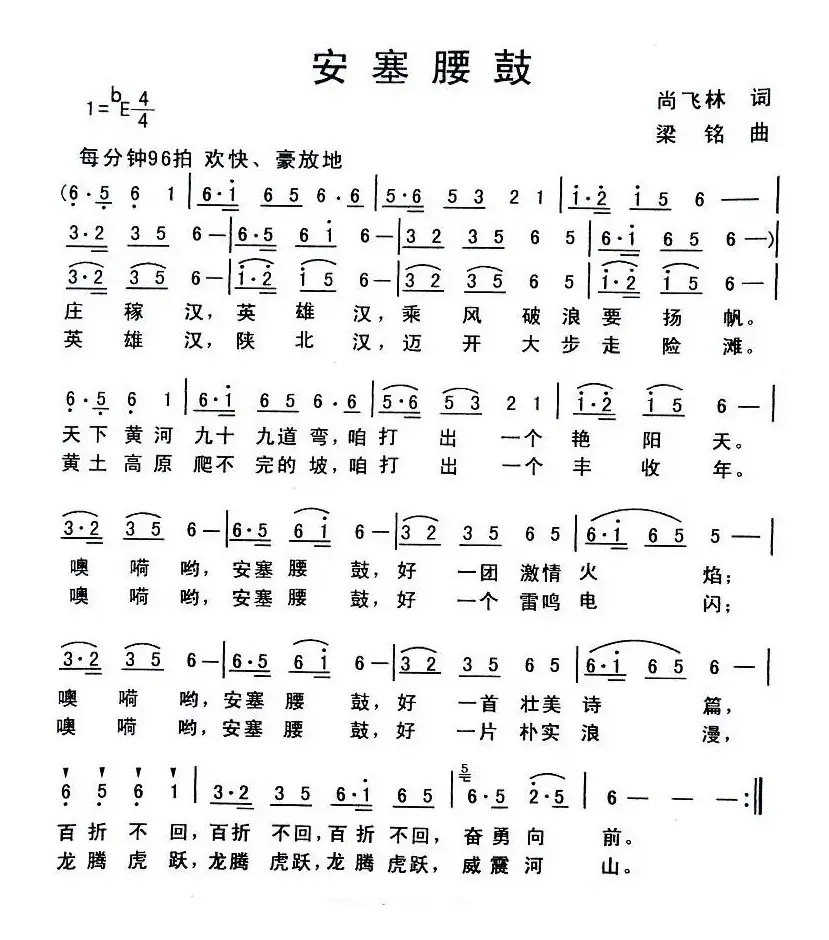 安塞腰鼓
1=♭E 4/4
尚飞林 词
梁铭 曲
每分钟96拍 欢快、豪放地
(6̣·5̣ 6̣ 1 | 6·i̇ 6 5 6·6 | 5·6 5 3 2 1 | i̇·2̇ i̇ 5 6 — — |
3·2 3 5 6 — | 6·5 6 i̇ 6 — | 3 2 3 5 6 5 | 6·i̇ 6 5 6 — )
3·2 3 5 6 — | i̇·2̇ i̇ 5 6 — | 3 2 3 5 6 5 | i̇·2̇ i̇ 5 6 — |
庄稼汉，英雄汉，乘风破浪要扬帆。
英雄汉，陕北汉，迈开大步走险滩。
6̣·5̣ 6̣ 1 | 6·i̇ 6 5 6·6 | 5·6 5 3 2 1 | i̇·2̇ i̇ 5 6 — |
天下黄河九十九道弯，咱打出一个艳阳天。
黄土高原爬不完的坡，咱打出一个丰收年。
3·2 3 5 6 — | 6·5 6 i̇ 6 — | 3 2 3 5 6 5 | 6·i̇ 6 5 5 — |
噢嗬哟，安塞腰鼓，好一团激情火焰；
噢嗬哟，安塞腰鼓，好一个雷鸣电闪；
3·2 3 5 6 — | 6·5 6 i̇ 6 — | 3 2 3 5 6 5 | 6·i̇ 6 5 6 — |
噢嗬哟，安塞腰鼓，好一首壮美诗篇，
噢嗬哟，安塞腰鼓，好一片朴实浪漫，
6̣ 5̣ 6̣ 1 | 3·2 3 5 6·i̇ 6 5 | 5 6·5 2̇·5 | 6 — — — :‖
百折不回，百折不回，百折不回，奋勇向前。
龙腾虎跃，龙腾虎跃，龙腾虎跃，威震河山。